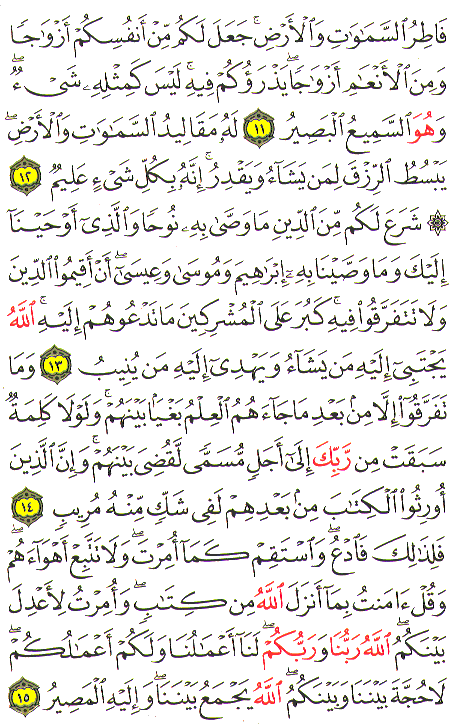 فَاطِرُ ٱلسَّمَٰوَٰتِ وَٱلۡأَرۡضِۚ جَعَلَ لَكُم مِّنۡ أَنفُسِكُمۡ أَزۡوَٰجٗا
وَمِنَ ٱلۡأَنۡعَٰمِ أَزۡوَٰجٗا يَذۡرَؤُكُمۡ فِيهِۚ لَيۡسَ كَمِثۡلِهِۦ شَيۡءٞۖ
وَهُوَ ٱلسَّمِيعُ ٱلۡبَصِيرُ ١١ لَهُۥ مَقَالِيدُ ٱلسَّمَٰوَٰتِ وَٱلۡأَرۡضِۖ
يَبۡسُطُ ٱلرِّزۡقَ لِمَن يَشَآءُ وَيَقۡدِرُۚ إِنَّهُۥ بِكُلِّ شَيۡءٍ عَلِيمٞ ١٢
۞ شَرَعَ لَكُم مِّنَ ٱلدِّينِ مَا وَصَّىٰ بِهِۦ نُوحٗا وَٱلَّذِيٓ أَوۡحَيۡنَآ
إِلَيۡكَ وَمَا وَصَّيۡنَا بِهِۦٓ إِبۡرَٰهِيمَ وَمُوسَىٰ وَعِيسَىٰٓۖ أَنۡ أَقِيمُواْ ٱلدِّينَ
وَلَا تَتَفَرَّقُواْ فِيهِۚ كَبُرَ عَلَى ٱلۡمُشۡرِكِينَ مَا تَدۡعُوهُمۡ إِلَيۡهِۚ ٱللَّهُ
يَجۡتَبِيٓ إِلَيۡهِ مَن يَشَآءُ وَيَهۡدِيٓ إِلَيۡهِ مَن يُنِيبُ ١٣ وَمَا
تَفَرَّقُوٓاْ إِلَّا مِنۢ بَعۡدِ مَا جَآءَهُمُ ٱلۡعِلۡمُ بَغۡيَۢا بَيۡنَهُمۡۚ وَلَوۡلَا كَلِمَةٞ
سَبَقَتۡ مِن رَّبِّكَ إِلَىٰٓ أَجَلٖ مُّسَمّٗى لَّقُضِيَ بَيۡنَهُمۡۚ وَإِنَّ ٱلَّذِينَ
أُورِثُواْ ٱلۡكِتَٰبَ مِنۢ بَعۡدِهِمۡ لَفِي شَكّٖ مِّنۡهُ مُرِيبٖ ١٤
فَلِذَٰلِكَ فَٱدۡعُۖ وَٱسۡتَقِمۡ كَمَآ أُمِرۡتَۖ وَلَا تَتَّبِعۡ أَهۡوَآءَهُمۡۖ
وَقُلۡ ءَامَنتُ بِمَآ أَنزَلَ ٱللَّهُ مِن كِتَٰبٖۖ وَأُمِرۡتُ لِأَعۡدِلَ
بَيۡنَكُمُۖ ٱللَّهُ رَبُّنَا وَرَبُّكُمۡۖ لَنَآ أَعۡمَٰلُنَا وَلَكُمۡ أَعۡمَٰلُكُمۡۖ
لَا حُجَّةَ بَيۡنَنَا وَبَيۡنَكُمُۖ ٱللَّهُ يَجۡمَعُ بَيۡنَنَاۖ وَإِلَيۡهِ ٱلۡمَصِيرُ ١٥